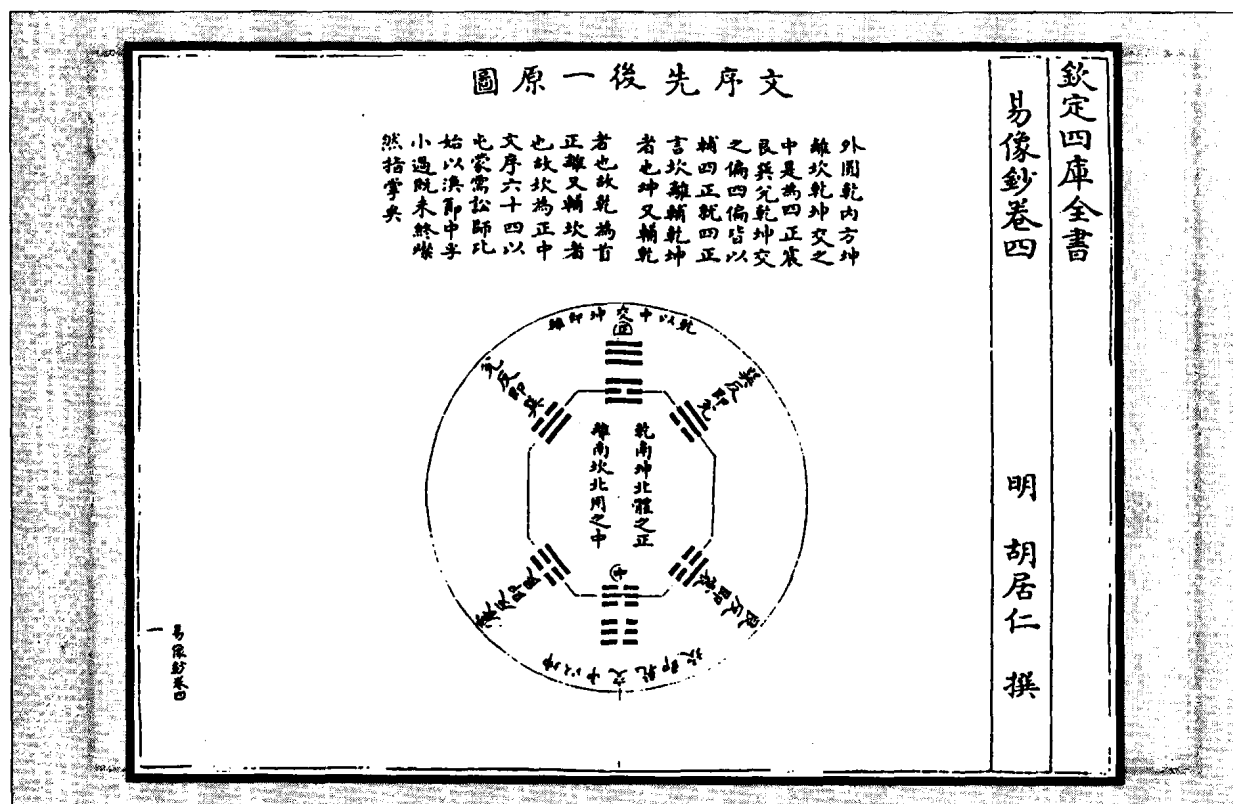 欽定四庫全書
易像鈔卷四
明 胡居仁 撰
文序先後一原圖
外圓乾内方坤
離坎乾坤交之
中是為四正震
艮巽兌乾坤交
之偏四偏皆以
輔四正就四正
言坎離輔乾坤
者也坤又輔乾
者也故乾為首
正離又輔坎者
也故坎為正中
文序六十四以
屯蒙需訟師比
始以渙節中孚
小過既未終燦
然指掌矣
乾以中交坤即離
巽反即兌
兌反即巽
乾南坤北體之正
離南坎北用之中
中
艮反即震
震反即艮
坤以中交乾即坎
易像鈔卷四
一